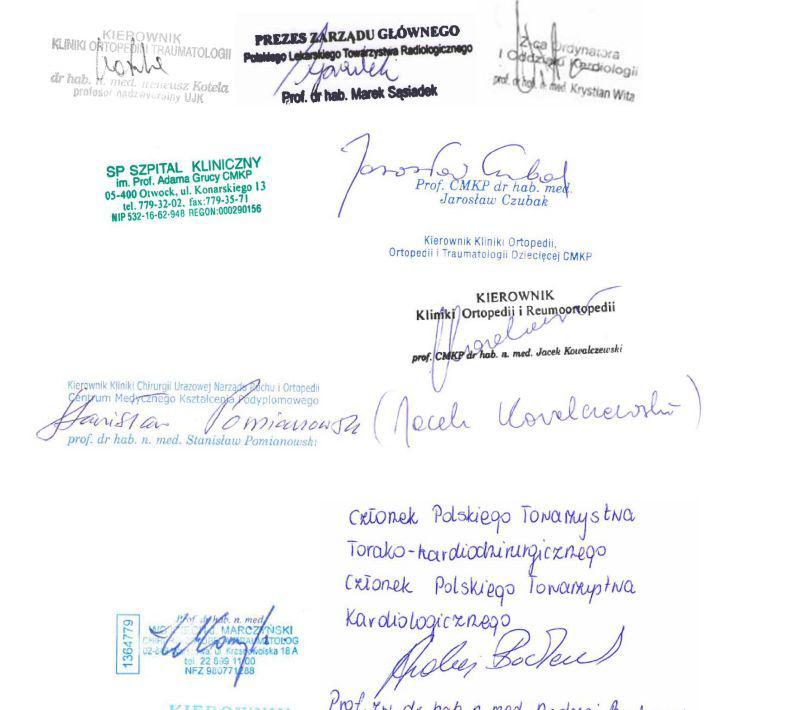 KIEROWNIK
KLINIKI ORTOPEDII I TRAUMATOLOGII
dr hab. n. med. Ireneusz Kotela
profesor nadzwyczajny UJK
PREZES ZARZĄDU GŁÓWNEGO
Polskiego Lekarskiego Towarzystwa Radiologicznego
Prof. dr hab. Marek Sąsiadek
Z-ca Ordynatora
I Oddziału Kardiologii
prof. dr hab. n. med. Krystian Wita
SP SZPITAL KLINICZNY
im. Prof. Adama Grucy CMKP
05-400 Otwock, ul. Konarskiego 13
tel. 779-32-02, fax:779-35-71
NIP 532-16-62-948 REGON:000290156
Jarosław Czubak
Prof. CMKP dr hab. med.
Jarosław Czubak
Kierownik Kliniki Ortopedii,
Ortopedii i Traumatologii Dziecięcej CMKP
KIEROWNIK
Kliniki Ortopedii i Reumoortopedii
prof. CMKP dr hab. n. med. Jacek Kowalczewski
Kierownik Kliniki Chirurgii Urazowej Narządu Ruchu i Ortopedii
Centrum Medycznego Kształcenia Podyplomowego
Stanisław Pomianowski
prof. dr hab. n. med. Stanisław Pomianowski
(Jacek Kowalczewski)
Członek Polskiego Towarzystwa
Torako-kardiochirurgicznego
Członek Polskiego Towarzystwa
Kardiologicznego
1364779
Prof. dr hab. n. med.
MARCZYŃSKI
02-8
18 A
tel. 22 899 11 00
NFZ 980771288
KIEROWNIK